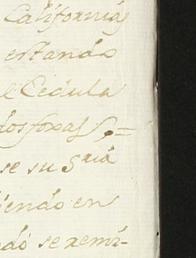 Californias
estando
l Cedula
dos foxas
se su S.ria
iendo en
do se remi-